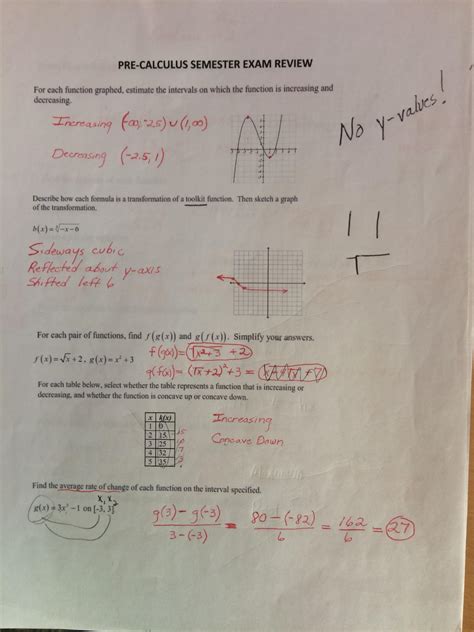 PRE-CALCULUS SEMESTER EXAM REVIEW
For each function graphed, estimate the intervals on which the function is increasing and
decreasing.
Increasing (-∞, -2.5) ∪ (1, ∞)
Decreasing (-2.5, 1)
No y-values!
Describe how each formula is a transformation of a toolkit function. Then sketch a graph
of the transformation.
b(x) = ∛-x-6
Sideways cubic
Reflected about y-axis
Shifted left 6
For each pair of functions, find f(g(x)) and g(f(x)). Simplify your answers.
f(g(x)) = √x²+3 +2
f(x) = √x + 2, g(x) = x² + 3
g(f(x)) = (√x+2)² + 3 =
For each table below, select whether the table represents a function that is increasing or
decreasing, and whether the function is concave up or concave down.
x k(x)
1 0
2 15
3 25
4 32
5 35
Increasing
Concave Down
Find the average rate of change of each function on the interval specified.
x₁ x₂
g(x) = 3x³ - 1 on [-3, 3]
g(3) - g(-3) / 3 - (-3) = 80 - (-82) / 6 = 162 / 6 = 27